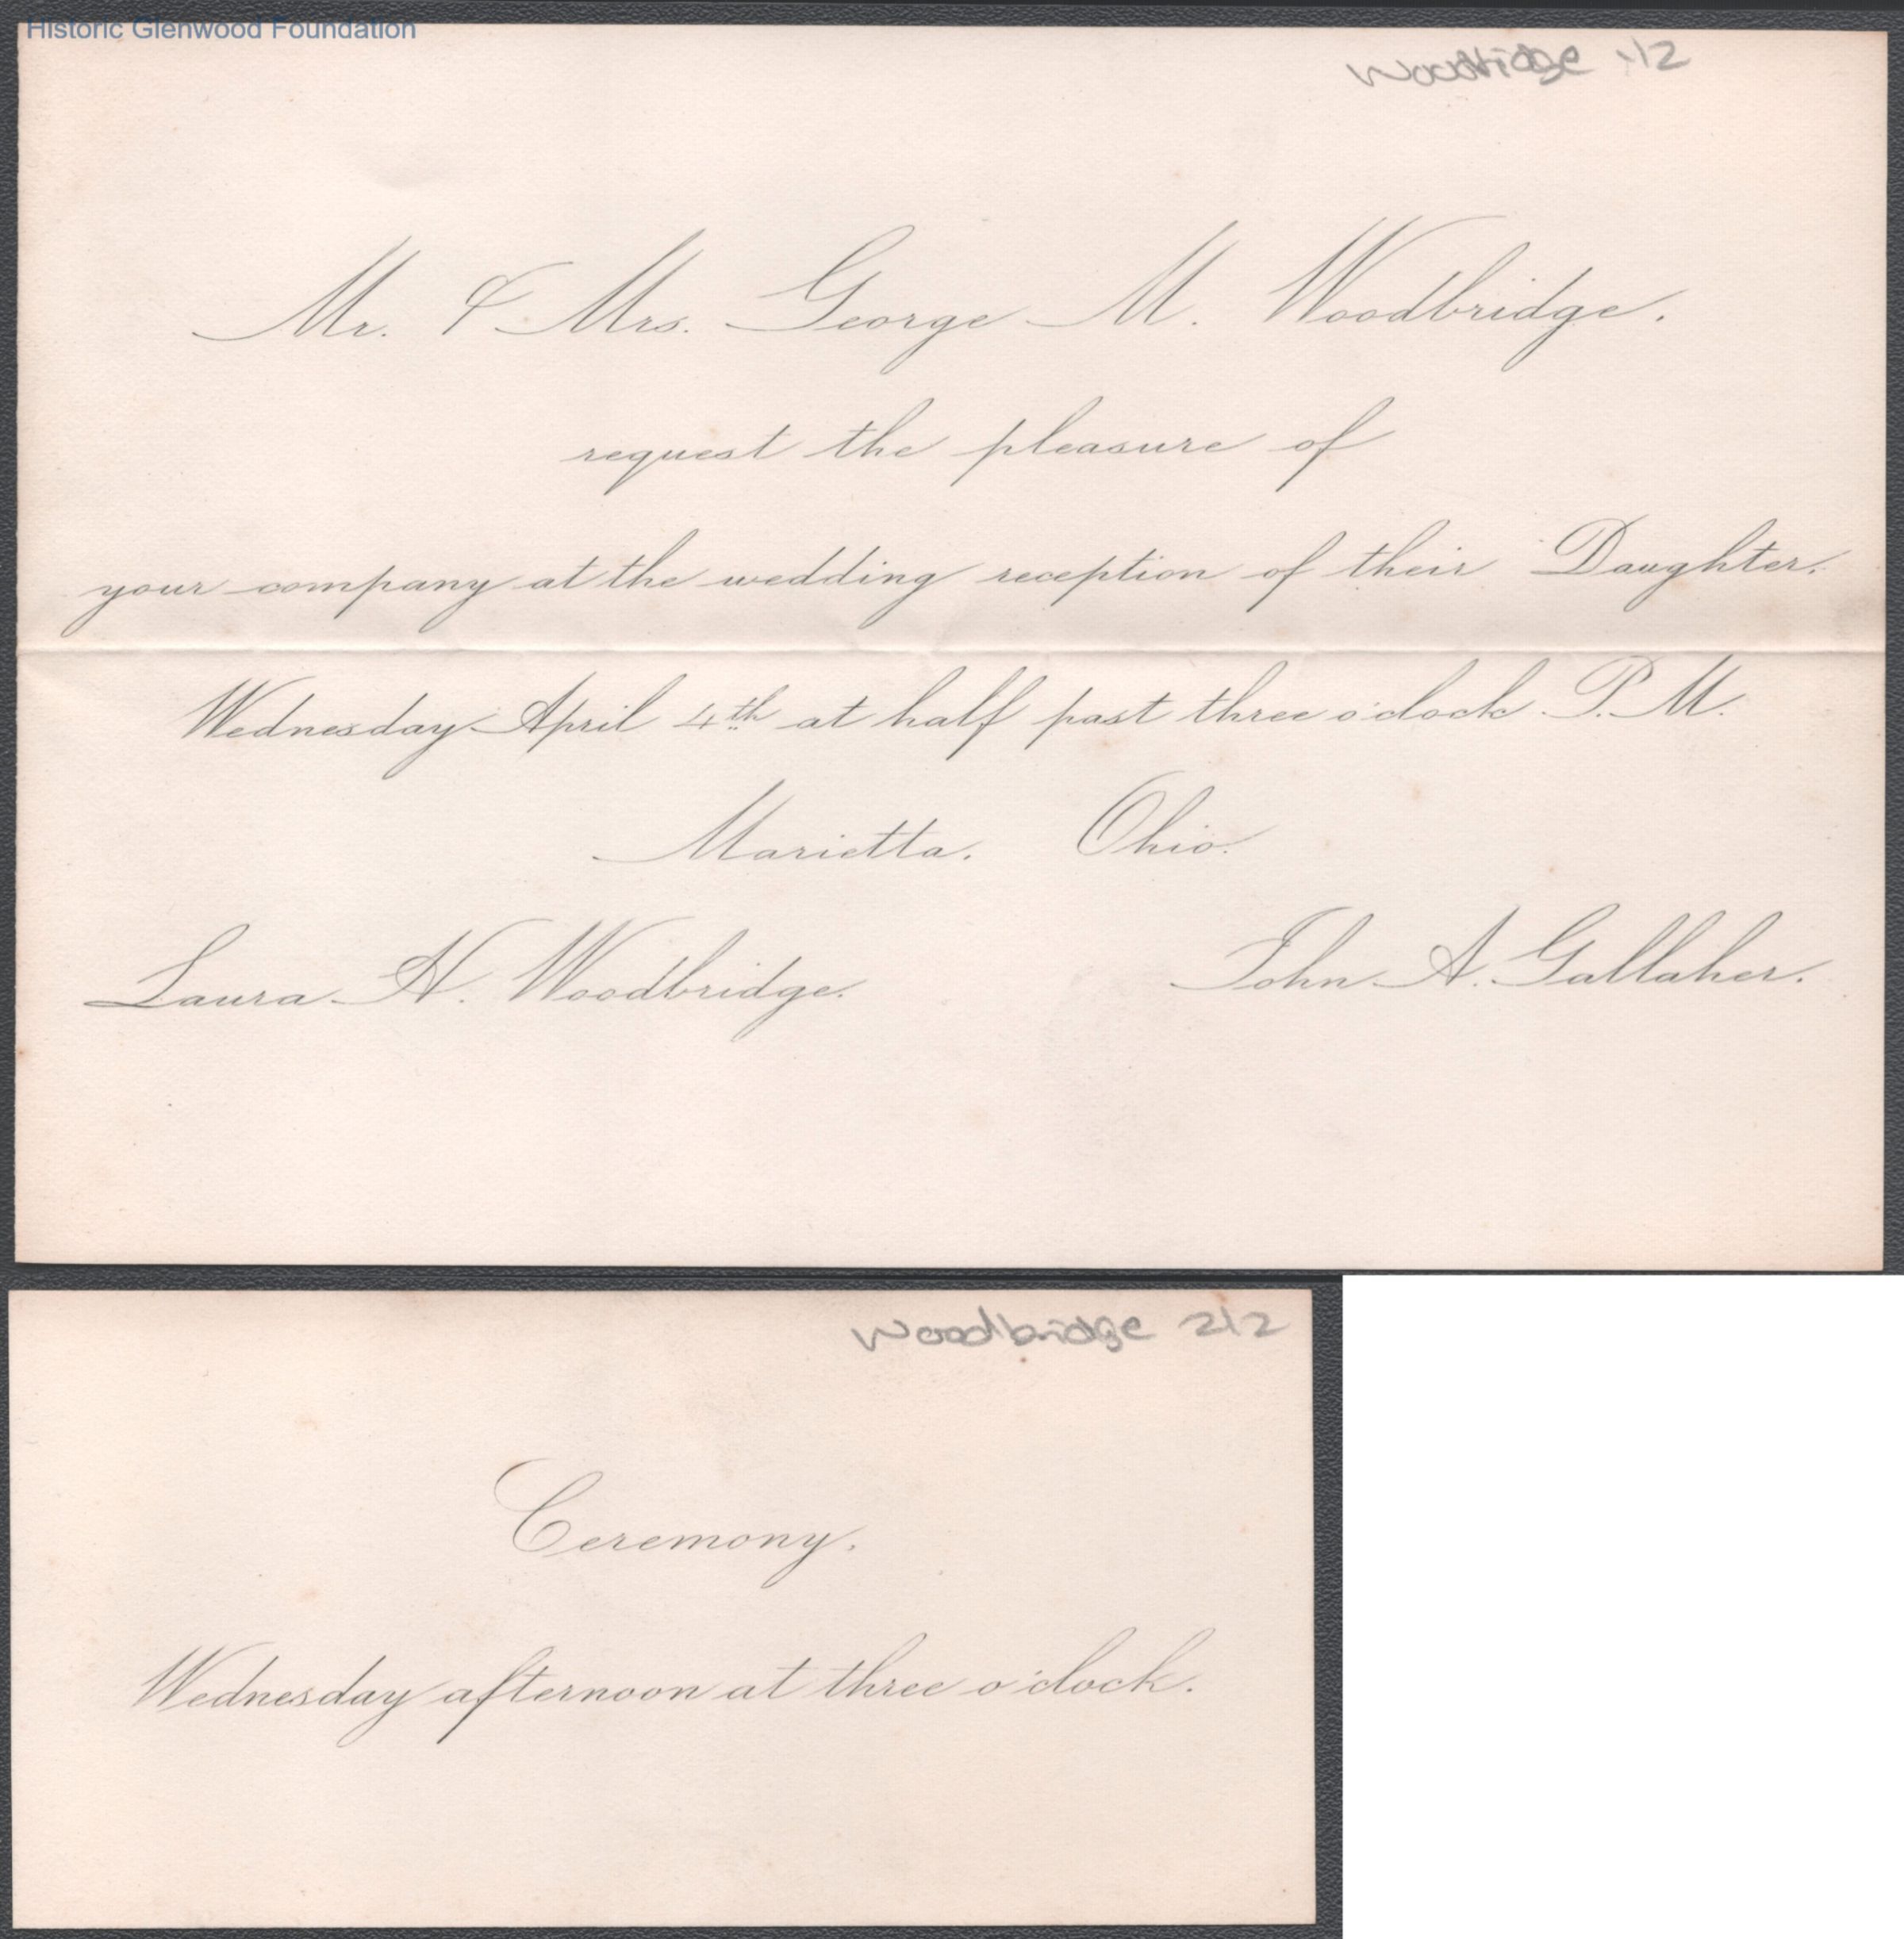 Historic Glenwood Foundation
Woodbridge 1/2
Mr. & Mrs. George M. Woodbridge.
request the pleasure of
your company at the wedding reception of their Daughter.
Wednesday April 4th at half past three o'clock P. M.
Marietta. Ohio.
Laura H. Woodbridge. John A. Gallaher.
Woodbridge 2/2
Ceremony.
Wednesday afternoon at three o'clock.